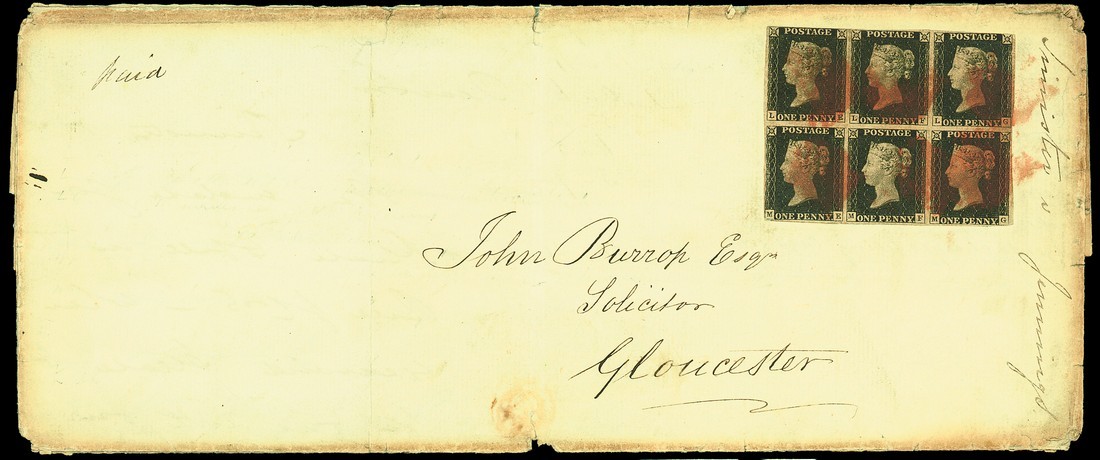 paid
POSTAGE POSTAGE POSTAGE
L ONE PENNY E L ONE PENNY F L ONE PENNY G
POSTAGE POSTAGE POSTAGE
M ONE PENNY E M ONE PENNY F M ONE PENNY G
John Burrop Esqr
Solicitor
Gloucester
Jennings